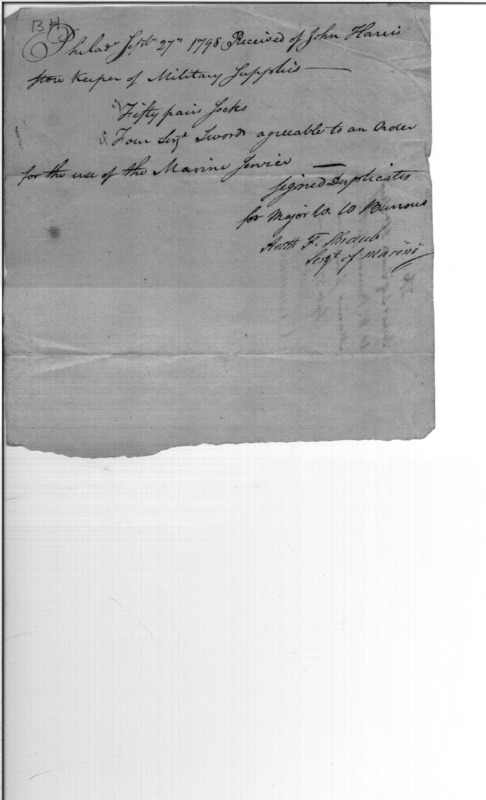 BH
Philada Septr 27th 1798 Received of John Harris
Store Keeper of Military Supplies
Fifty pairs Socks
Four Sergt Swords agreeable to an Order
for the use of the Marine Service
Signed Duplicates
for Major W. W Burrows
F.
Sergt of Marines